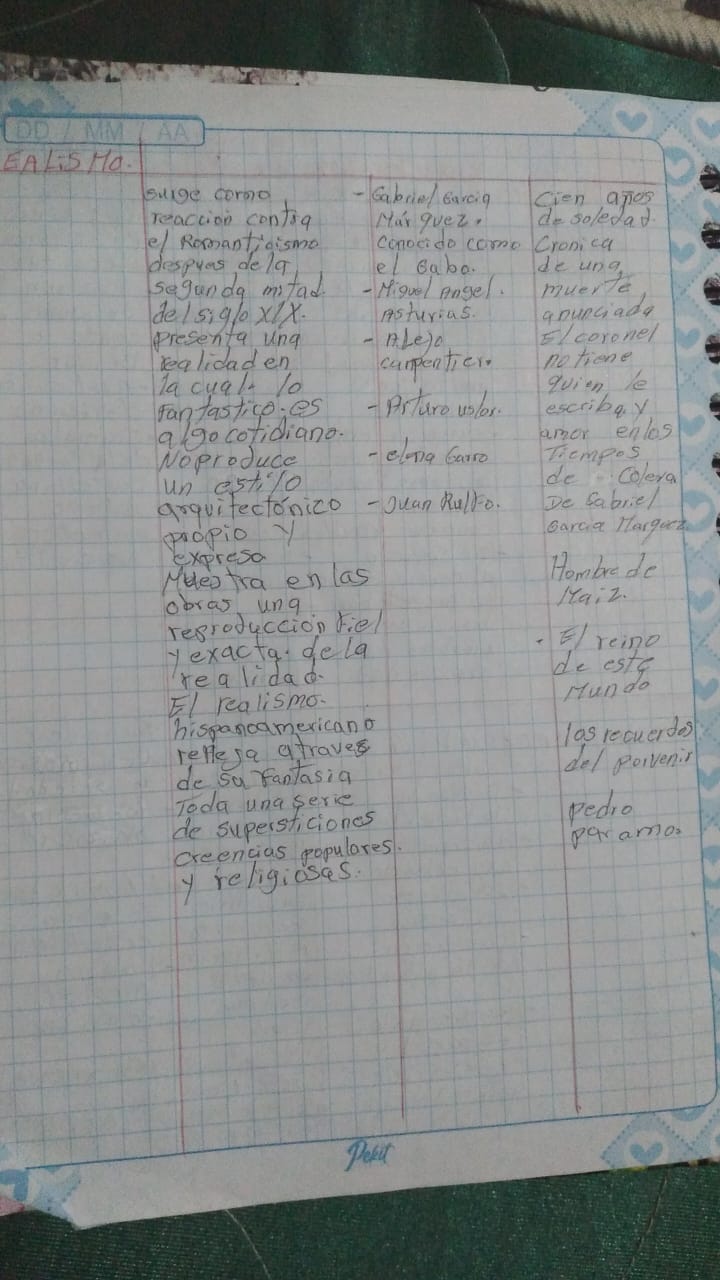 DD / MM / AA
EALISMO.
surge como
reaccion contra
el Romanticismo
despues de la
segunda mitad
del siglo XIX.
presenta una
realidad en
la cual lo
fantastico es
algo cotidiano.
No produce
un estilo
arquitectónico
propio y
expresa
Muestra en las
obras una
reproducción fiel
y exacta de la
realidad.
El realismo.
hispanoamericano
refleja a traves
de su fantasia
Toda una serie
de supersticiones
creencias populares.
y religiosas.
- Gabriel Garcia
Márquez.
Conocido como
el Gabo.
- Miguel Angel.
Asturias.
- Alejo
carpentier.
- Arturo uslar.
- elena Garro
- Juan Rulfo.
Cien años
de soledad.
Cronica
de una
muerte
anunciada
El coronel
no tiene
quien le
escriba y
amor en los
Tiempos
de Colera
De Gabriel
Garcia Marquez
Hombre de
Maiz.
- El reino
de este
Mundo
los recuerdos
del porvenir
pedro
paramo.
Pekit